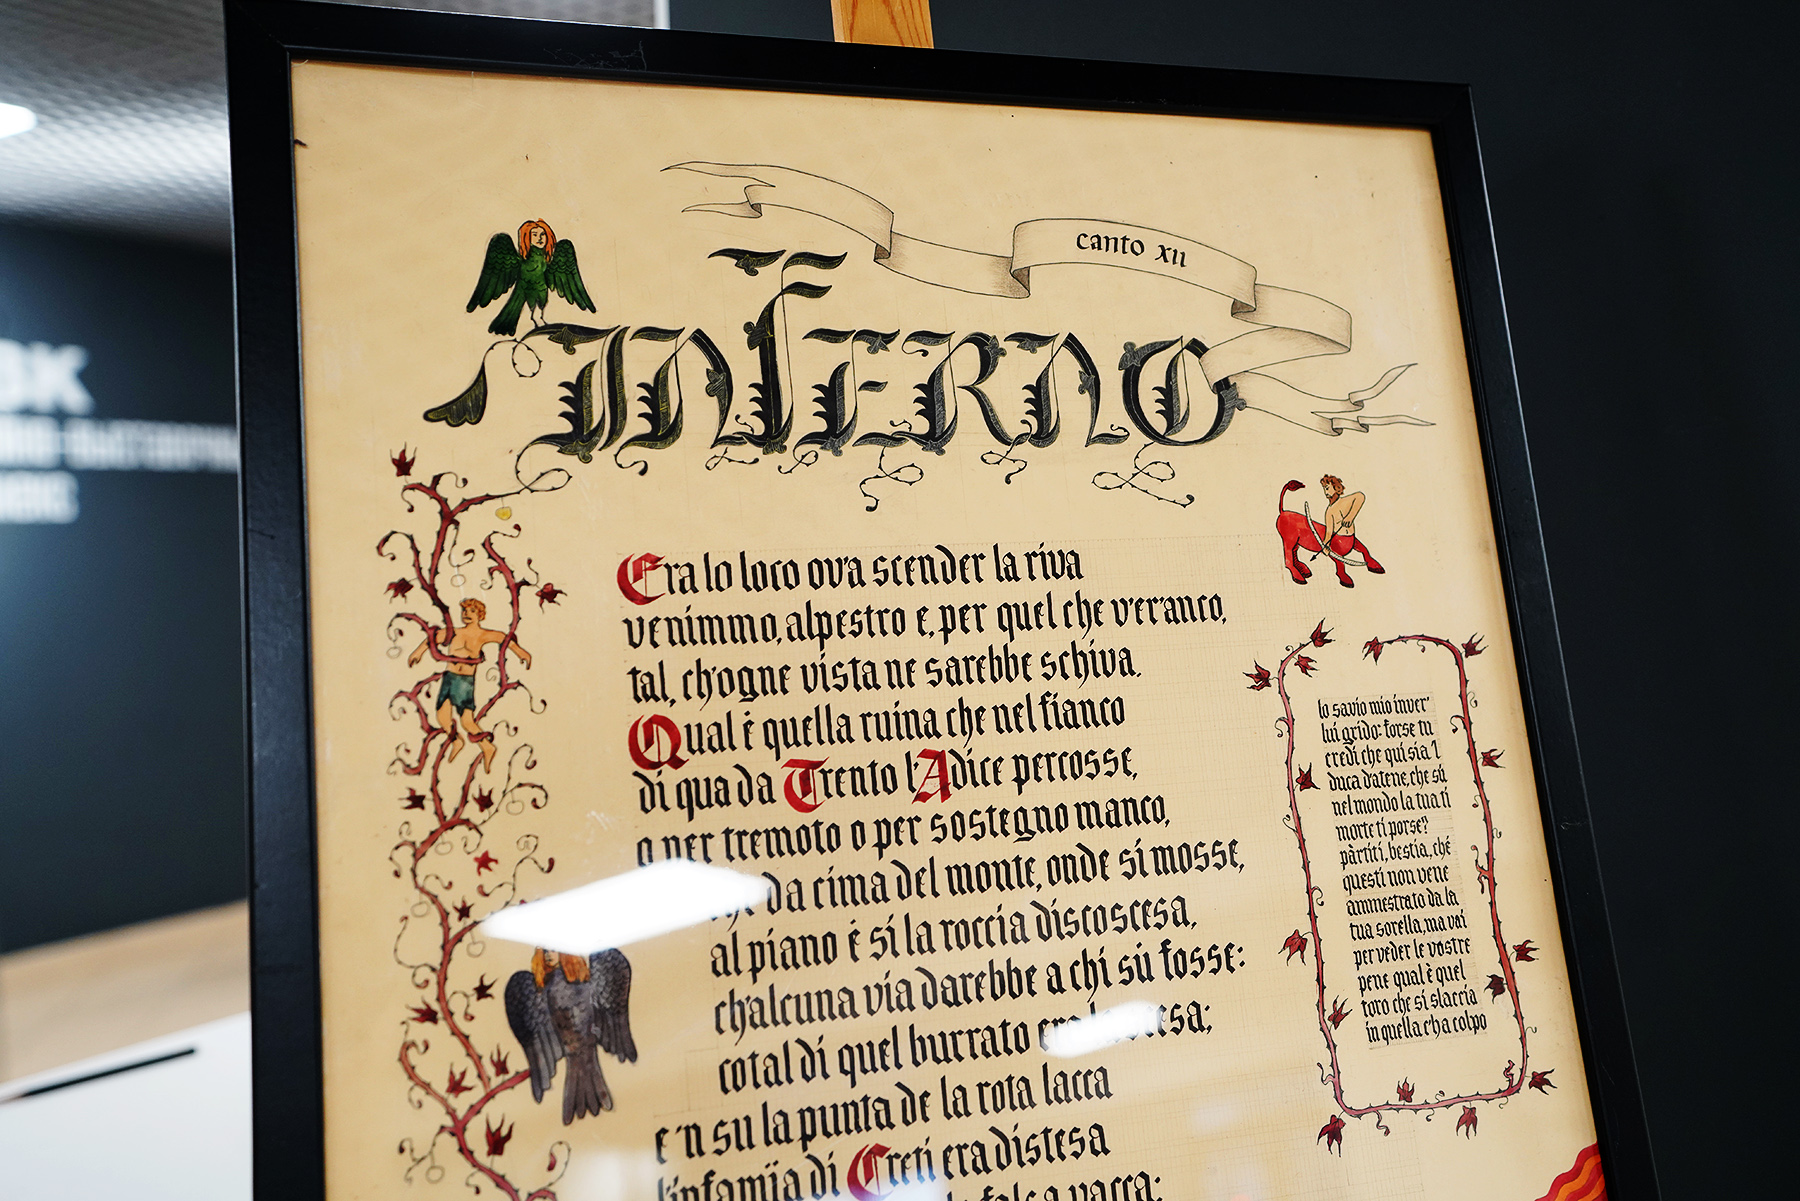 canto xii
INFERNO
Era lo loco ov'a scender la riva
venimmo, alpestro e, per quel che v'er'anco,
tal, ch'ogne vista ne sarebbe schiva.
Qual è quella ruina che nel fianco
di qua da Trento l'Adice percosse,
o per tremoto o per sostegno manco,
che da cima del monte, onde si mosse,
al piano è sì la roccia discoscesa,
ch'alcuna via darebbe a chi sù fosse:
cotal di quel burrato era la scesa;
e 'n su la punta de la rota lacca
l'infamïa di Creti era distesa
vacca;
lo savio mio inver'
lui gridò: forse tu
credi che qui sia 'l
duca d'atene, che sù
nel mondo la tua ti
morte ti porse?
pàrtiti, bestia, ché
questi non vene
ammestrato da la
tua sorella, ma vai
per veder le vostre
pene qual è quel
toro che si slaccia
in quella c'ha colpo